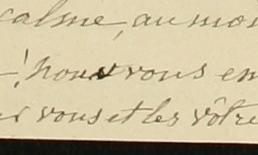 calme, au mo
! nous vous en
vous et les vôtre